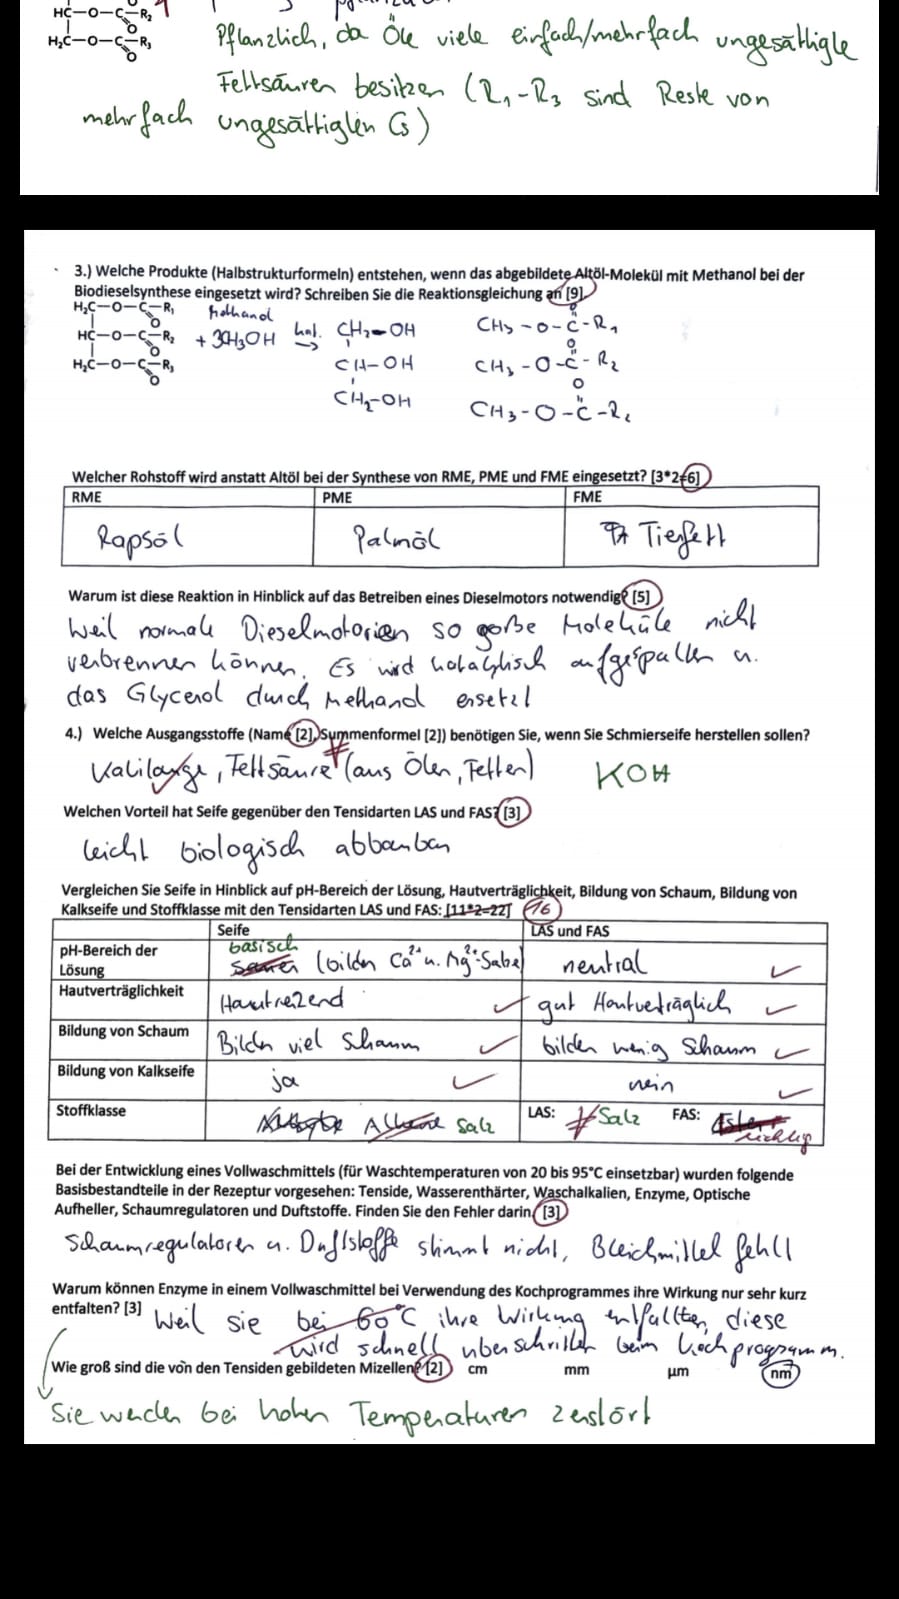 HC–O–C–R₂
O
H₂C–O–C–R₃
O
Pflanzlich, da Öle viele einfach/mehrfach ungesättigte
Fettsäuren besitzen (R₁-R₃ sind Reste von
mehrfach ungesättigten CS)
3.) Welche Produkte (Halbstrukturformeln) entstehen, wenn das abgebildete Altöl-Molekül mit Methanol bei der
Biodieselsynthese eingesetzt wird? Schreiben Sie die Reaktionsgleichung an [9]
H₂C–O–C–R₁
O
HC–O–C–R₂
O
H₂C–O–C–R₃
O
Methanol
+ 3CH₃OH kat. →
CH₂–OH
CH–OH
CH₂–OH
O
CH₃–O–C–R₁
O
CH₃–O–C–R₂
O
CH₃–O–C–R₂
Welcher Rohstoff wird anstatt Altöl bei der Synthese von RME, PME und FME eingesetzt? [3*2=6]
RME PME FME
Rapsöl Palmöl Tierfett
Warum ist diese Reaktion in Hinblick auf das Betreiben eines Dieselmotors notwendig? [5]
Weil normale Dieselmotorien so große Moleküle nicht
verbrennen können. Es wird katalytisch aufgespalten u.
das Glycerol durch Methanol ersetzt
4.) Welche Ausgangsstoffe (Name [2], Summenformel [2]) benötigen Sie, wenn Sie Schmierseife herstellen sollen?
Kalilauge, Fettsäure (aus Ölen, Fetten) KOH
Welchen Vorteil hat Seife gegenüber den Tensidarten LAS und FAS? [3]
leicht biologisch abbaubar
Vergleichen Sie Seife in Hinblick auf pH-Bereich der Lösung, Hautverträglichkeit, Bildung von Schaum, Bildung von
Kalkseife und Stoffklasse mit den Tensidarten LAS und FAS: [11*2=22] 16
Seife LAS und FAS
pH-Bereich der Lösung basisch sauer (bilden Ca²⁺ u. Mg²⁺-Salze) neutral
Hautverträglichkeit Hautreizend gut Hautverträglich
Bildung von Schaum Bilden viel Schaum bilden wenig Schaum
Bildung von Kalkseife ja nein
Stoffklasse Salz LAS: Salz FAS: Ester richtig
Bei der Entwicklung eines Vollwaschmittels (für Waschtemperaturen von 20 bis 95°C einsetzbar) wurden folgende
Basisbestandteile in der Rezeptur vorgesehen: Tenside, Wasserenthärter, Waschalkalien, Enzyme, Optische
Aufheller, Schaumregulatoren und Duftstoffe. Finden Sie den Fehler darin. [3]
Schaumregulatoren u. Duftstoffe stimmt nicht, Bleichmittel fehlt
Warum können Enzyme in einem Vollwaschmittel bei Verwendung des Kochprogrammes ihre Wirkung nur sehr kurz
entfalten? [3] Weil sie bei 60°C ihre Wirkung entfallten, diese
wird schnell überschritten beim Kochprogramm.
Wie groß sind die von den Tensiden gebildeten Mizellen? [2] cm mm µm nm
Sie werden bei hohen Temperaturen zerstört